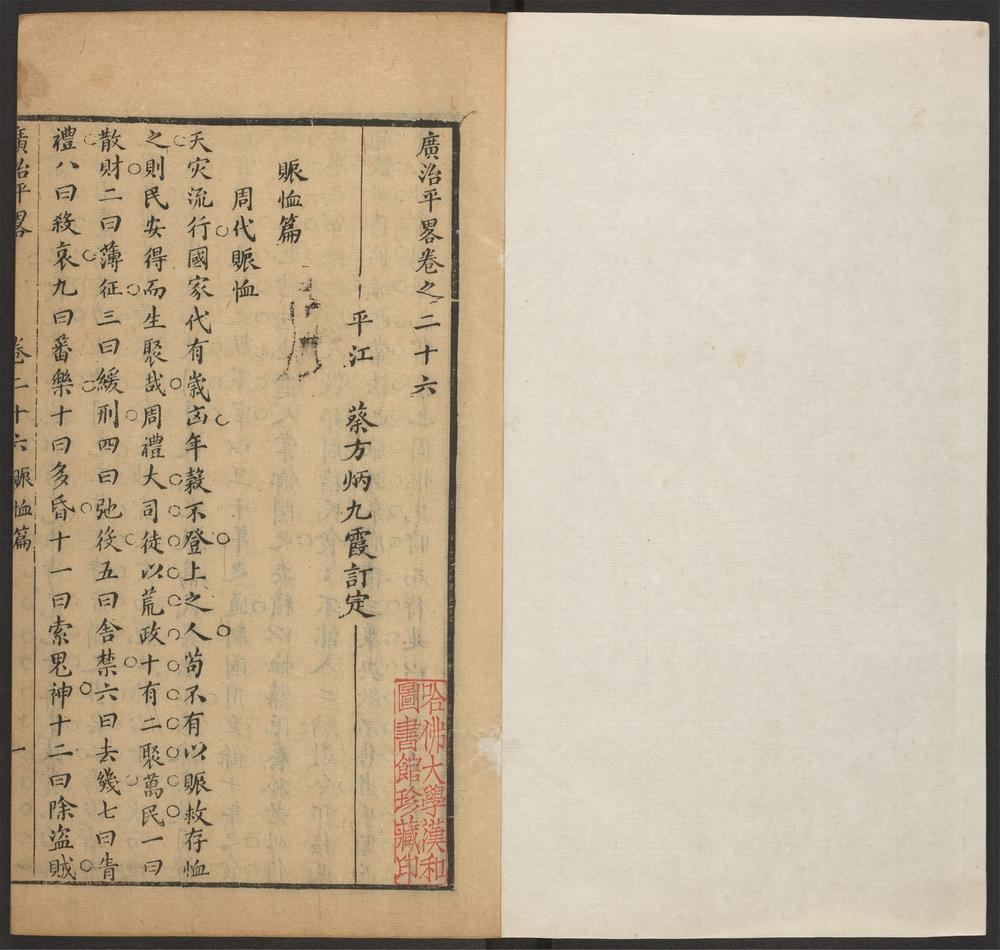 廣治平畧卷之二十六
平江 蔡方炳九霞訂定
賑恤篇
周代賑恤
天灾流行國家代有歲㐫年穀不登上之人茍不有以賑救存恤
之則民安得而生聚哉周禮大司徒以荒政十有二聚萬民一曰
散財二曰薄征三曰緩刑四曰弛役五曰舎禁六曰去幾七曰眚
禮八曰殺哀九曰蕃樂十曰多昏十一曰索鬼神十二曰除盗賊
廣治平畧 卷二十六 賑恤篇 一
哈佛大學漢和
圖書館珍藏印